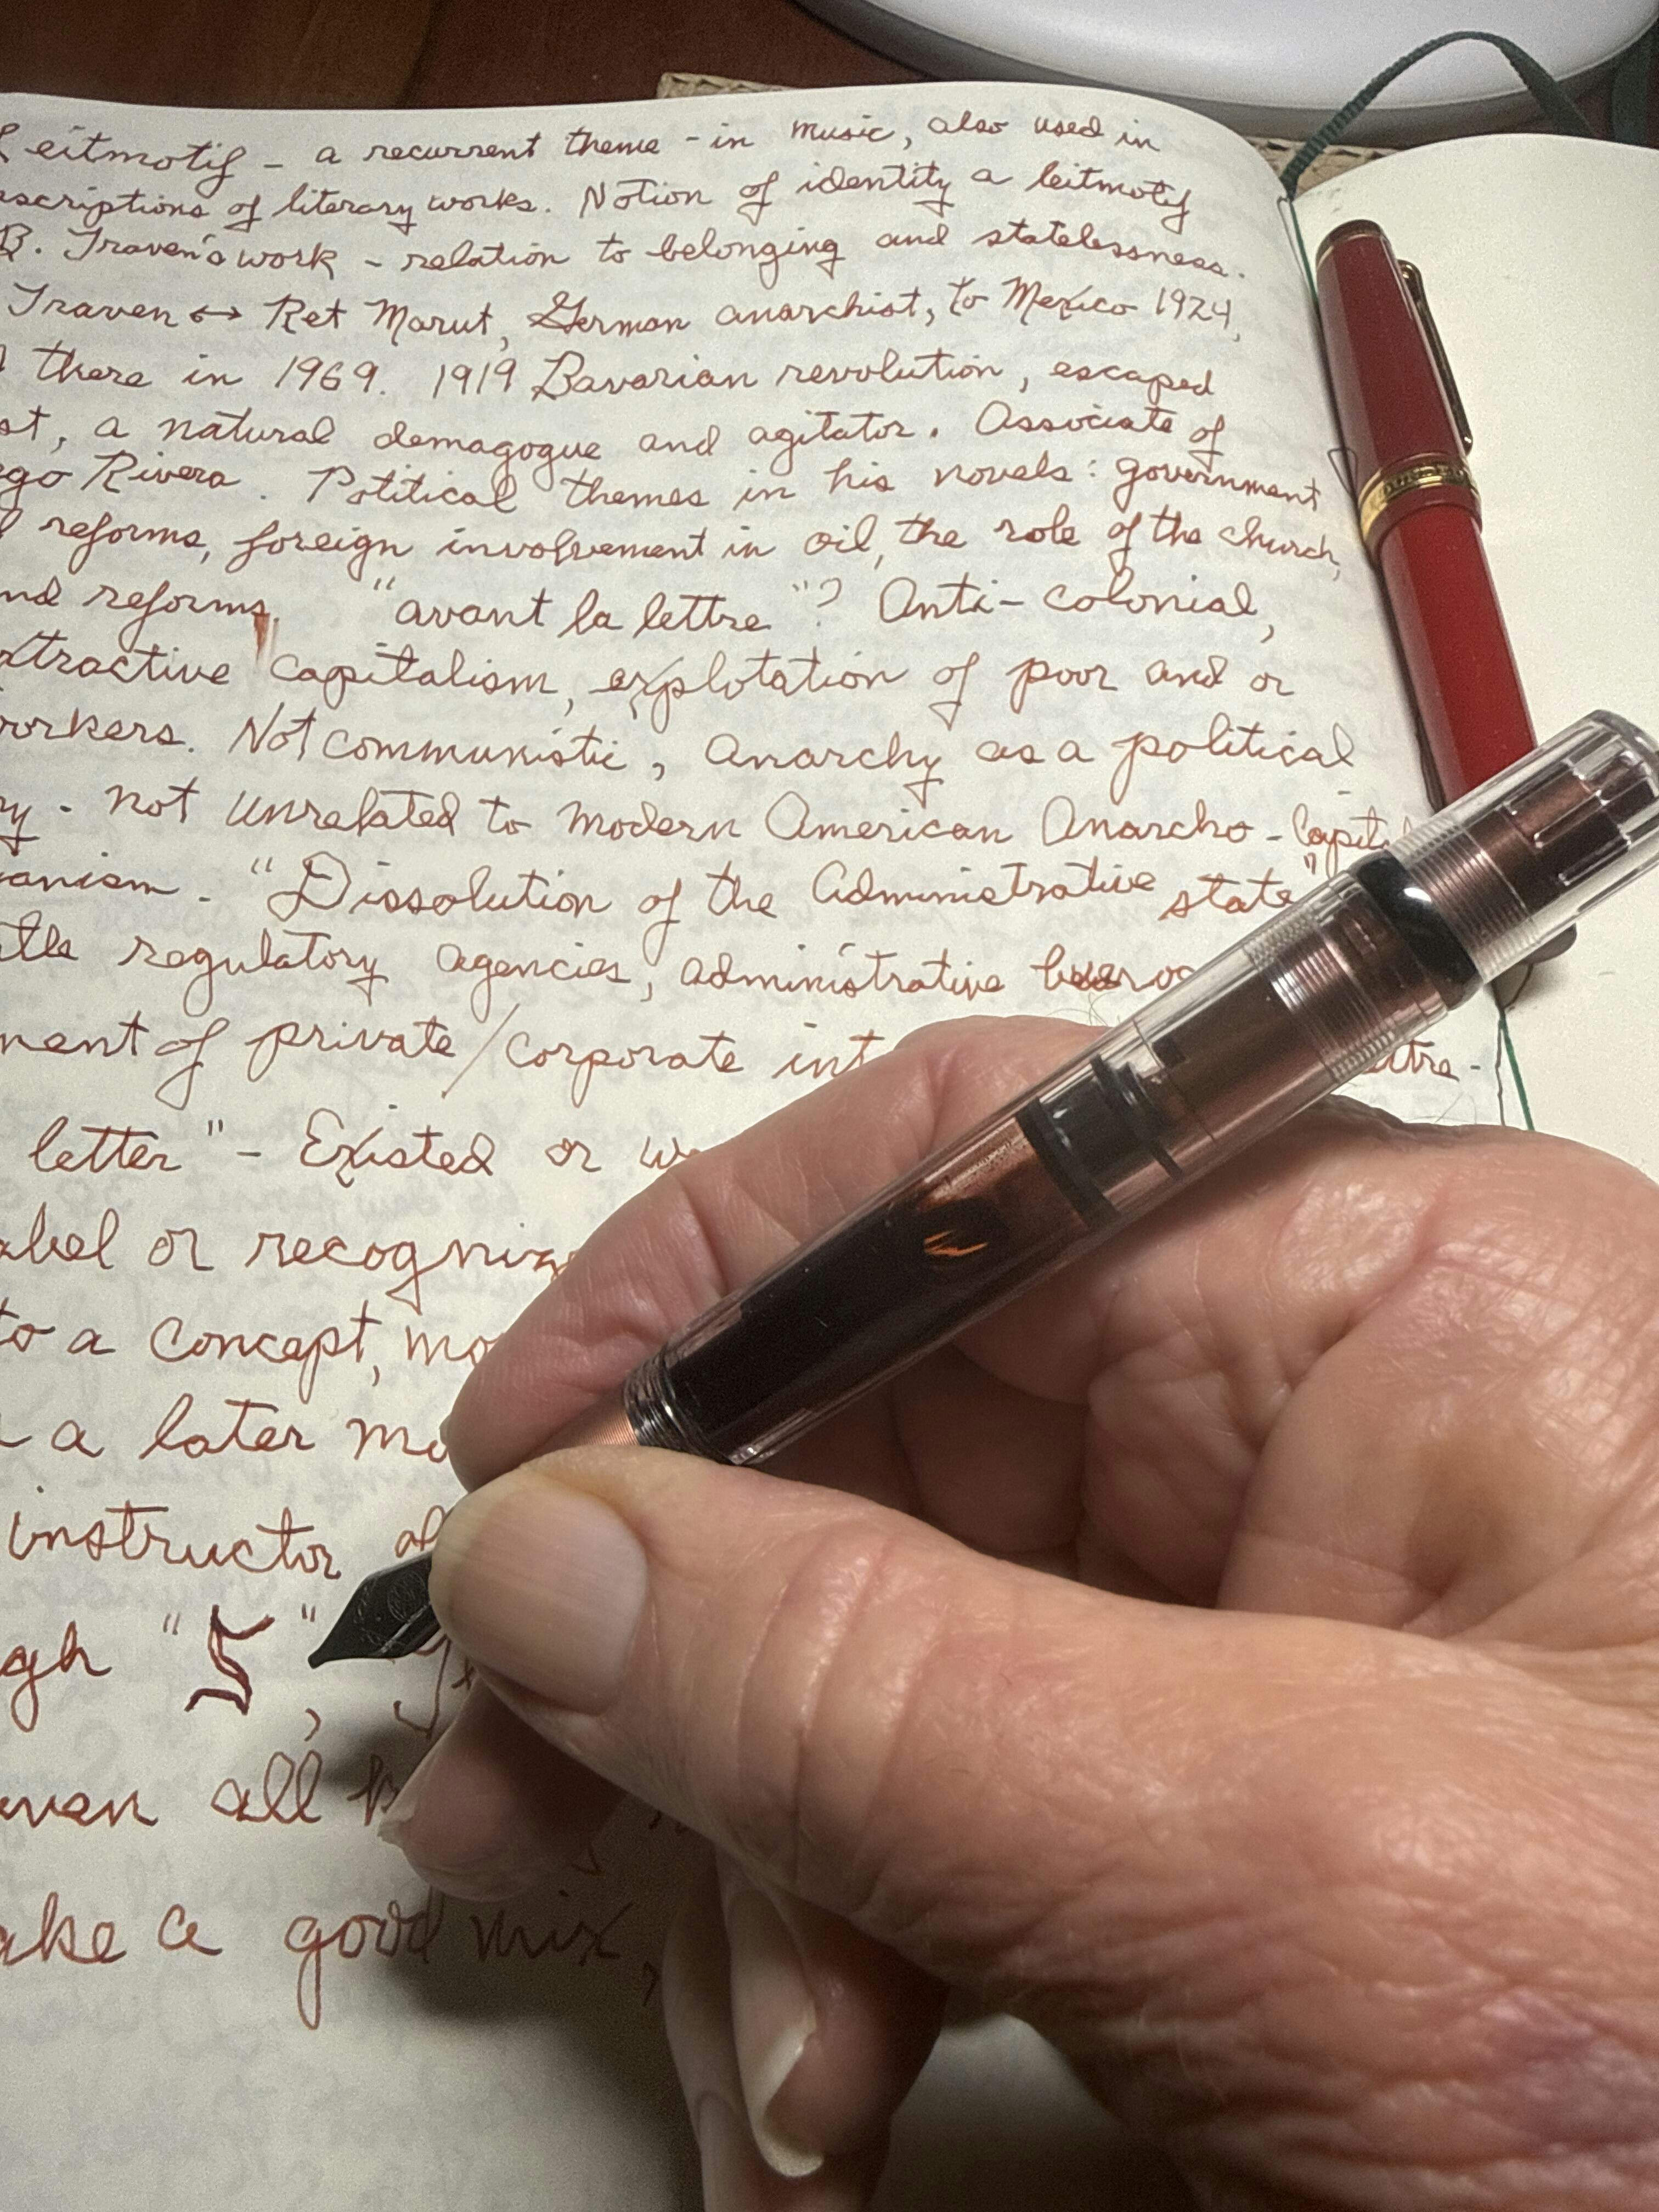 Leitmotif - a recurrent theme - in music, also used in
scriptions of literary works. Notion of identity a leitmotif
B. Traven's work - relation to belonging and statelessness.
Traven ↔ Ret Marut, German anarchist, to Mexico 1924,
there in 1969. 1919 Bavarian revolution, escaped
st, a natural demagogue and agitator. Associate of
go Rivera. Political themes in his novels: government
reforms, foreign involvement in oil, the role of the church,
nd reforms. "avant la lettre"? Anti-colonial,
xtractive capitalism, explotation of poor and or
workers. Not communistic, Anarchy as a political
ry - not unrelated to modern American Anarcho-Capit
anism. "Dissolution of the Administrative state"
tle regulatory agencies, administrative
ment of private/corporate int ttre-
letter" - Existed or w
abel or recogniz
to a concept, mo
a later mo
instructor
gh "5",
even all
ake a good mix,